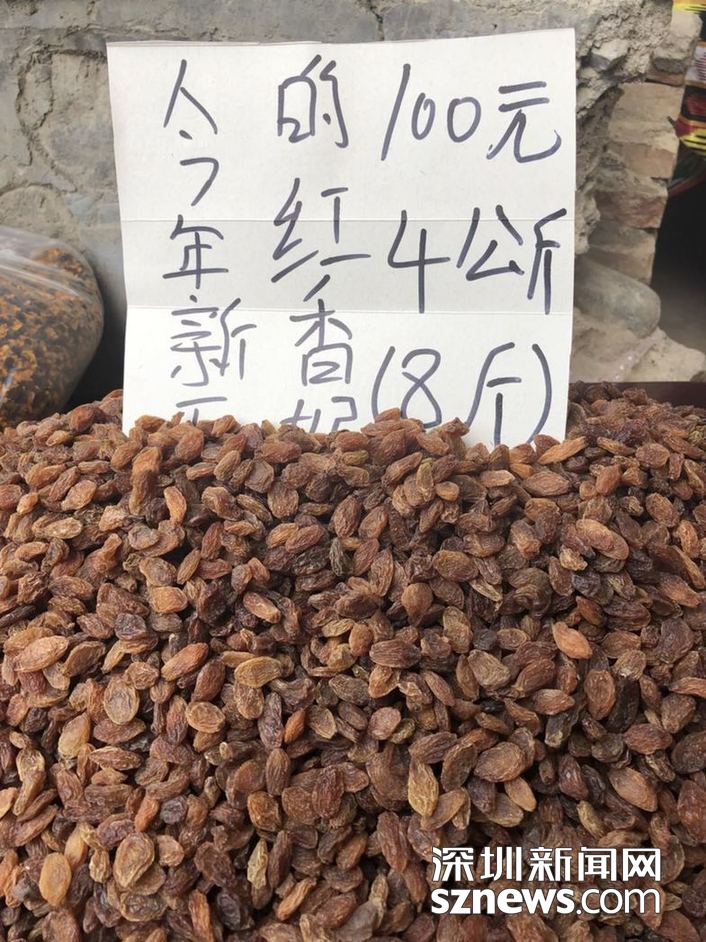 今年新
的红香妃
100元
4公斤
(8斤)
深圳新闻网
sznews.com